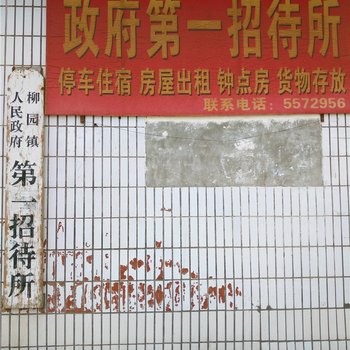 政府第一招待所
停车住宿 房屋出租 钟点房 货物存放
联系电话：5572956
柳园镇
人民政府
第一招待所